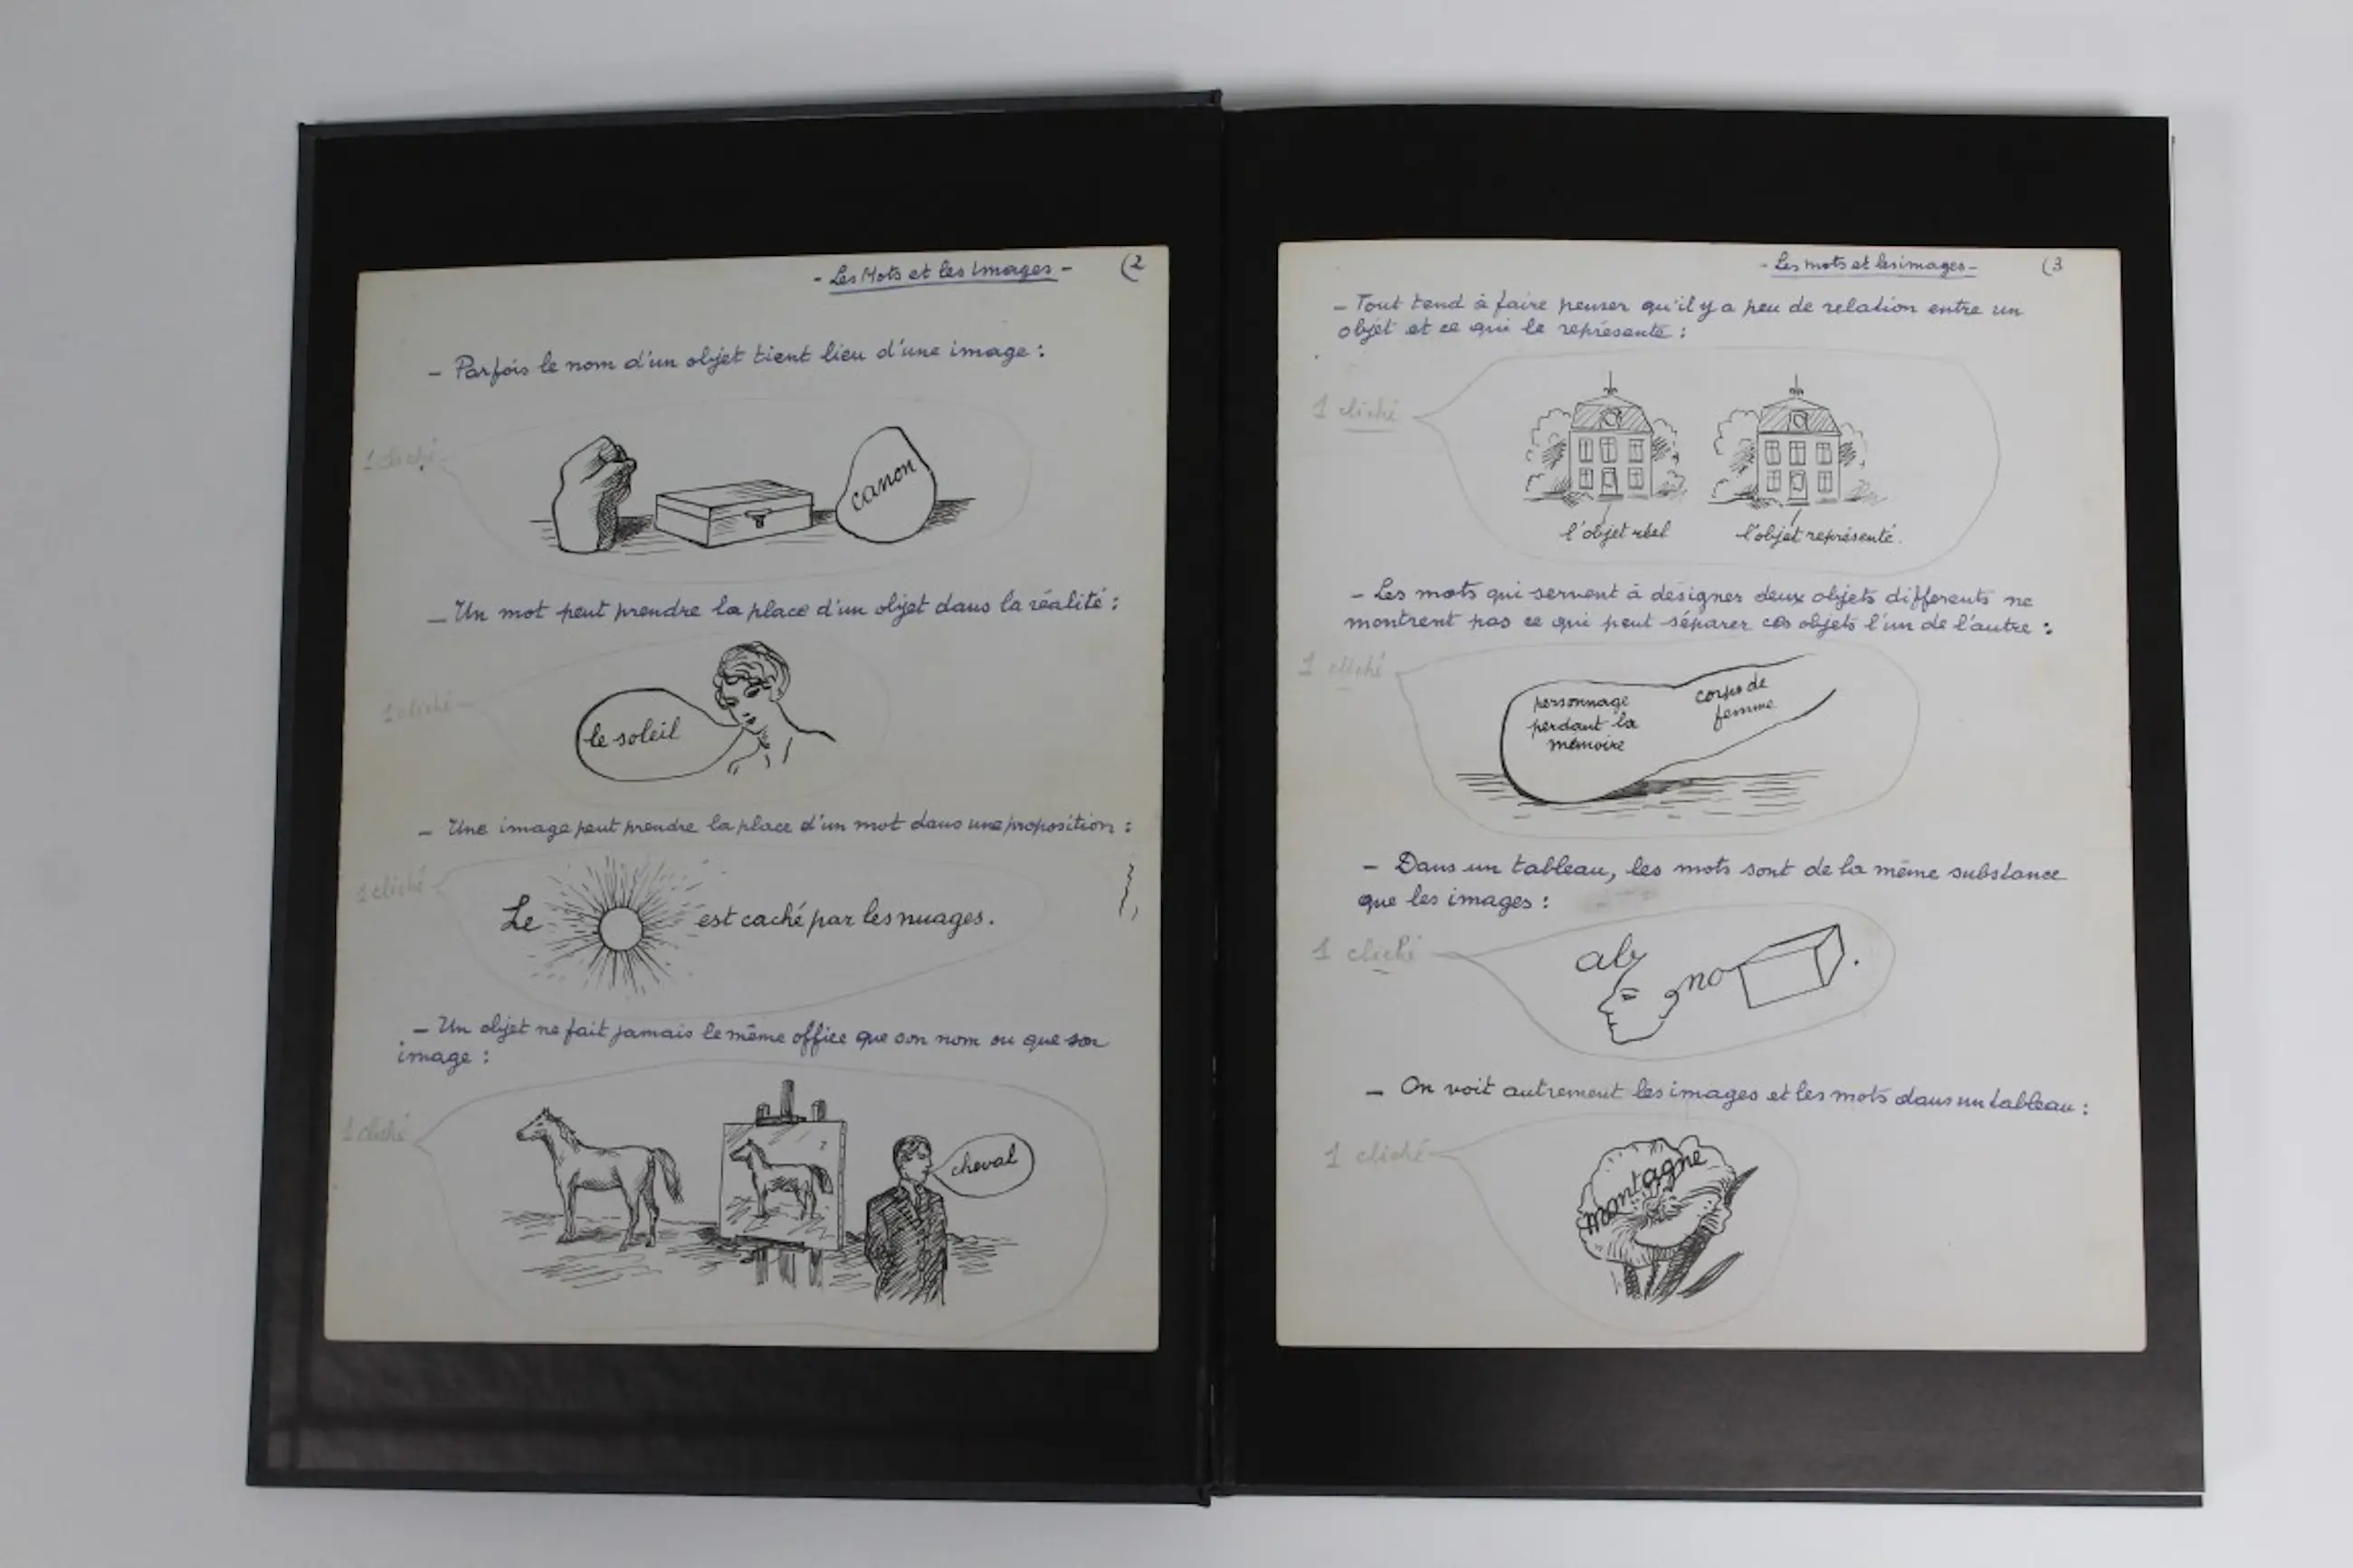 - Les Mots et les Images - (2
- Parfois le nom d'un objet tient lieu d'une image :
1 cliché
canon
- Un mot peut prendre la place d'un objet dans la réalité :
1 cliché
le soleil
- Une image peut prendre la place d'un mot dans une proposition :
1 cliché
Le est caché par les nuages.
- Un objet ne fait jamais le même office que son nom ou que son
image :
1 cliché
cheval
- Les mots et les images - (3
- Tout tend à faire penser qu'il y a peu de relation entre un
objet et ce qui le représente :
1 cliché
l'objet réel l'objet représenté.
- Les mots qui servent à désigner deux objets différents ne
montrent pas ce qui peut séparer ces objets l'un de l'autre :
1 cliché
personnage
perdant la
mémoire
corps de
femme
- Dans un tableau, les mots sont de la même substance
que les images :
1 cliché
no
- On voit autrement les images et les mots dans un tableau :
1 cliché
montagne